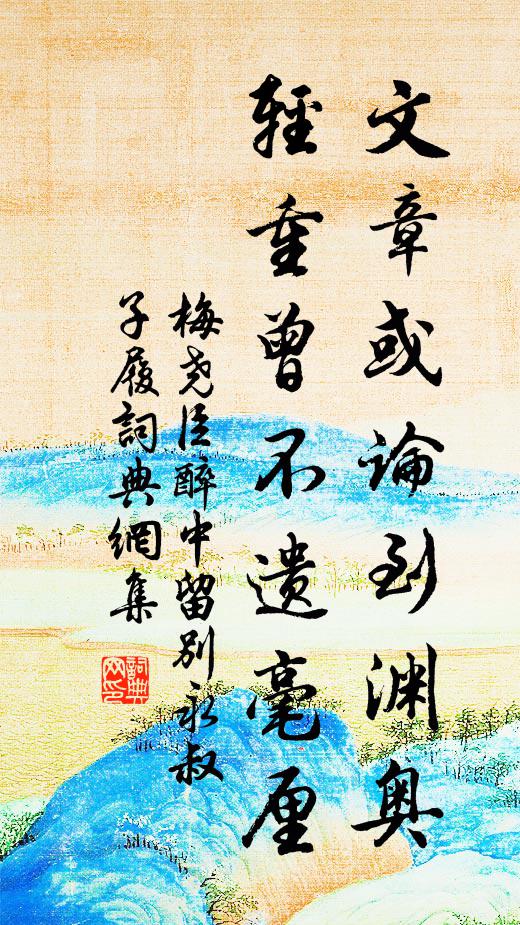 文章或論到渊奧
輕重曾不遺毫厘
梅尧臣醉中留別永叔
子履詞典網集
詞典网印